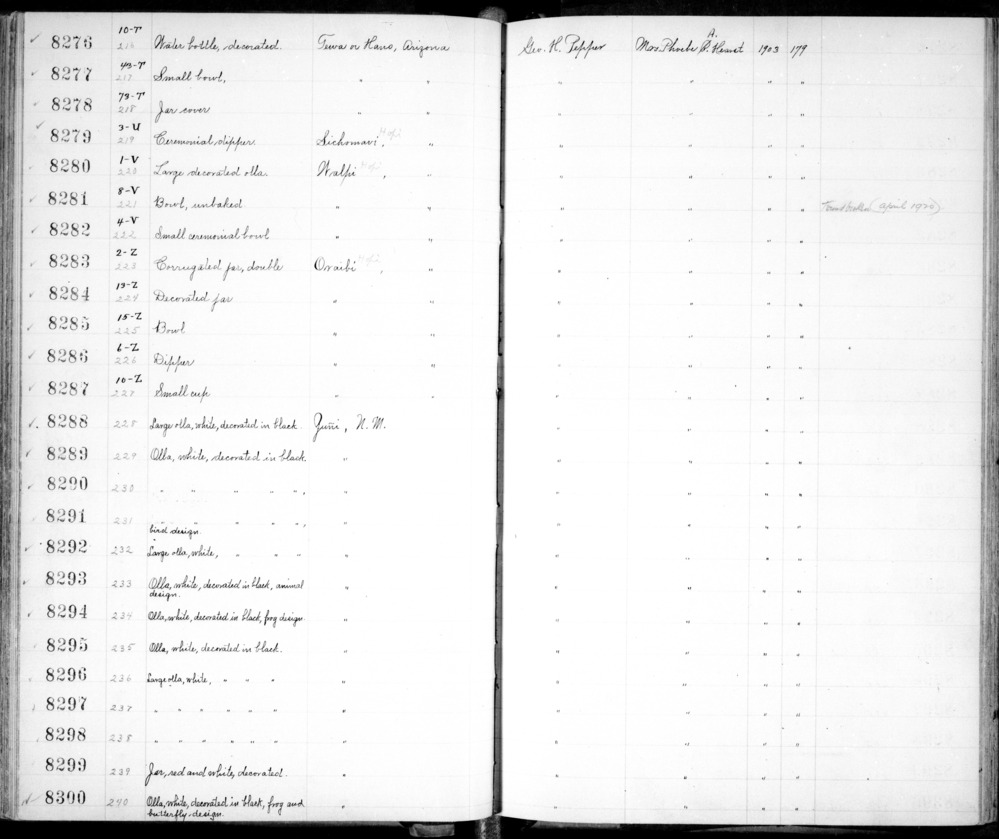 8276 10-T 216 Water bottle, decorated. Tewa or Hano, Arizona Geo. H. Pepper Mrs. Phoebe A. Hearst 1903 179
8277 43-T 217 Small bowl, " " " " " "
8278 73-T 218 Jar cover " " " " " "
8279 3-U 219 Ceremonial dipper Sichomavi, Hopi " " " " "
8280 1-V 220 Large decorated olla. Walpi Hopi, " " " " "
8281 8-V 221 Bowl, unbaked " " " " " " (April 1920)
8282 4-V 222 Small ceremonial bowl " " " " " "
8283 2-Z 223 Corrugated jar, double Oraibi Hopi, " " " " "
8284 13-Z 224 Decorated jar " " " " " "
8285 15-Z 225 Bowl " " " " " "
8286 6-Z 226 Dipper " " " " " "
8287 10-Z 227 Small cup " " " " " "
8288 228 Large olla, white, decorated in black. Zuñi, N. M. " " " "
8289 229 Olla, white, decorated in black. " " " " "
8290 230 " " " " ", " " " " "
8291 231 " " " " ", " " " " "
bird design.
8292 232 Large olla, white, " " " " " " " "
8293 233 Olla, white, decorated in black, animal " " " " "
design.
8294 234 Olla, white, decorated in black, frog design. " " " " "
8295 235 Olla, white, decorated in black. " " " " "
8296 236 Large olla, white, " " " " " " " "
8297 237 " " " " " " " " " " "
8298 238 " " " " " " " " " " "
8299 239 Jar, red and white, decorated. " " " " "
8300 240 Olla, white, decorated in black, frog and " " " " "
butterfly design.